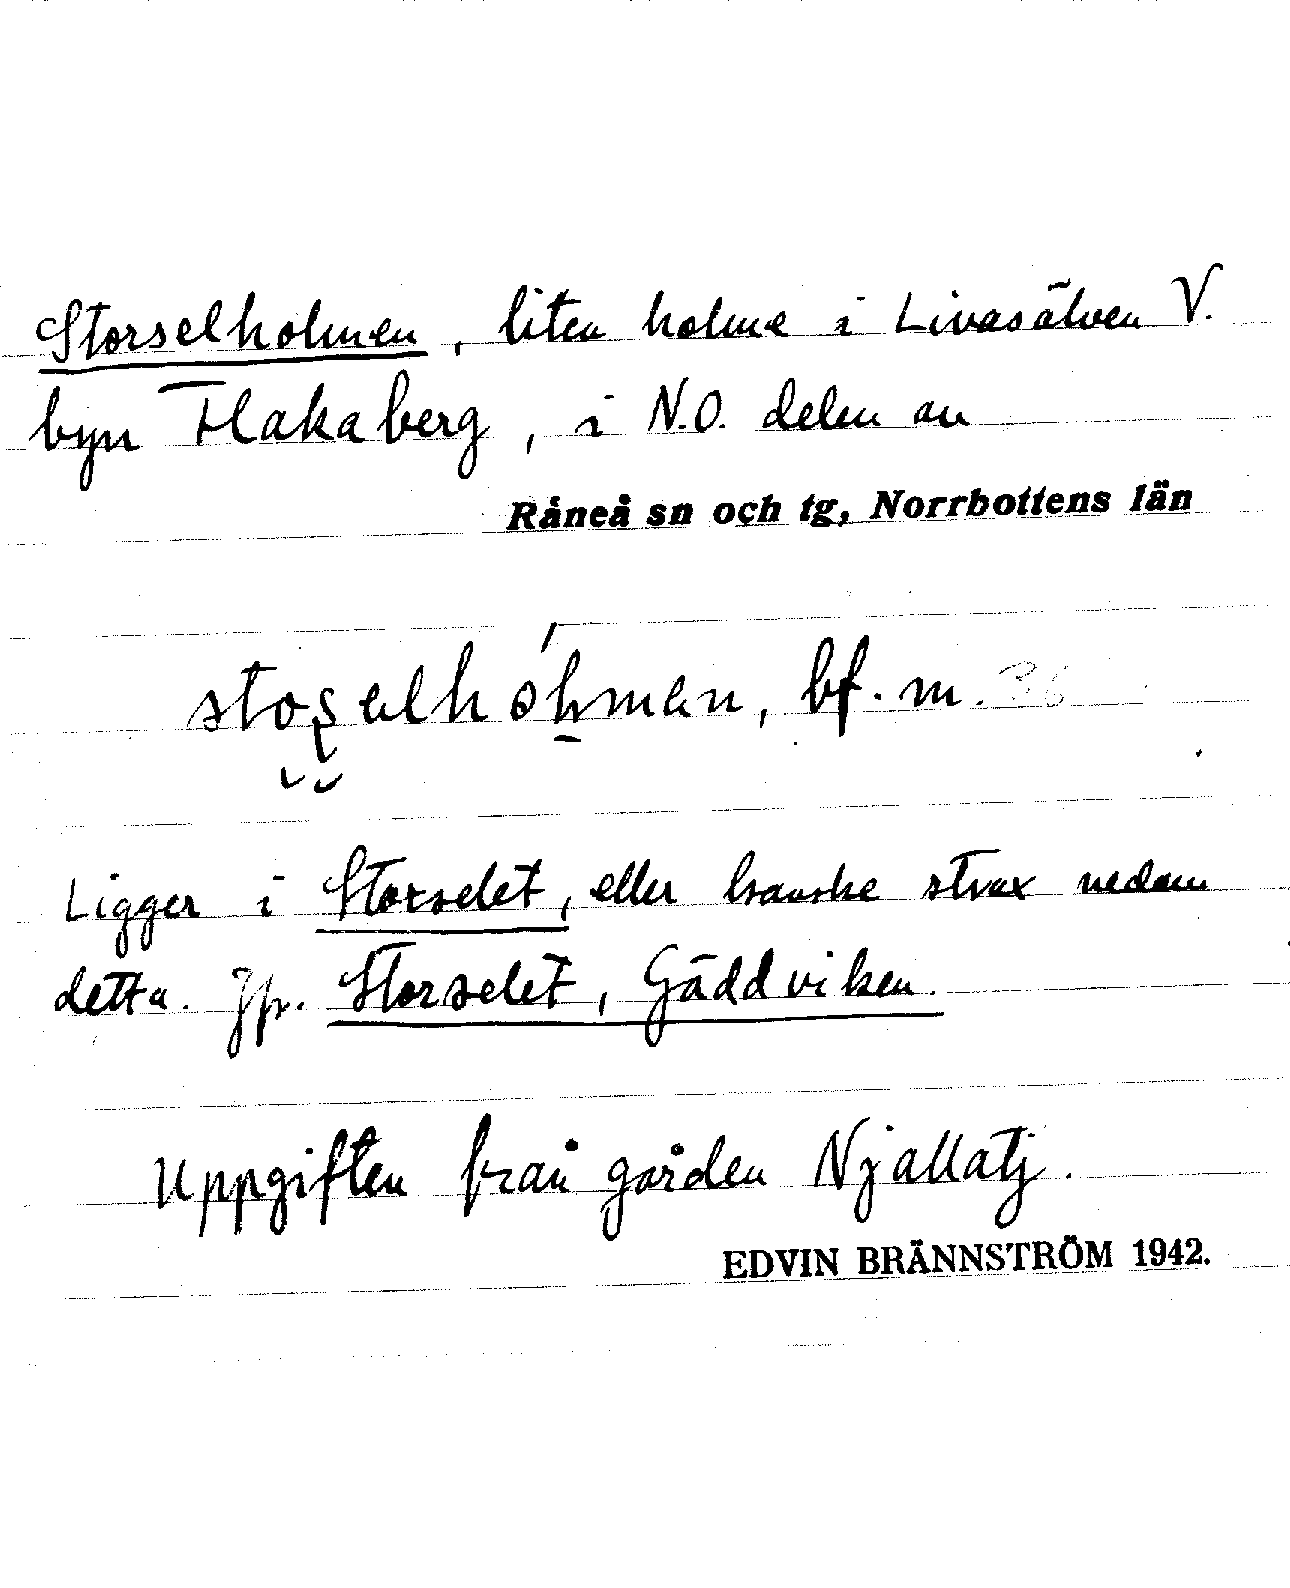 Storselholmen, liten holme i Livasälven V.
byn Flakaberg, i N.O. delen av
Råneå sn och tg, Norrbottens län
bf. m.
Ligger i Storselet, eller kanske strax nedom
detta. Jfr. Storselet, Gäddviken.
Uppgiften från gården Njallatj.
EDVIN BRÄNNSTRÖM 1942.